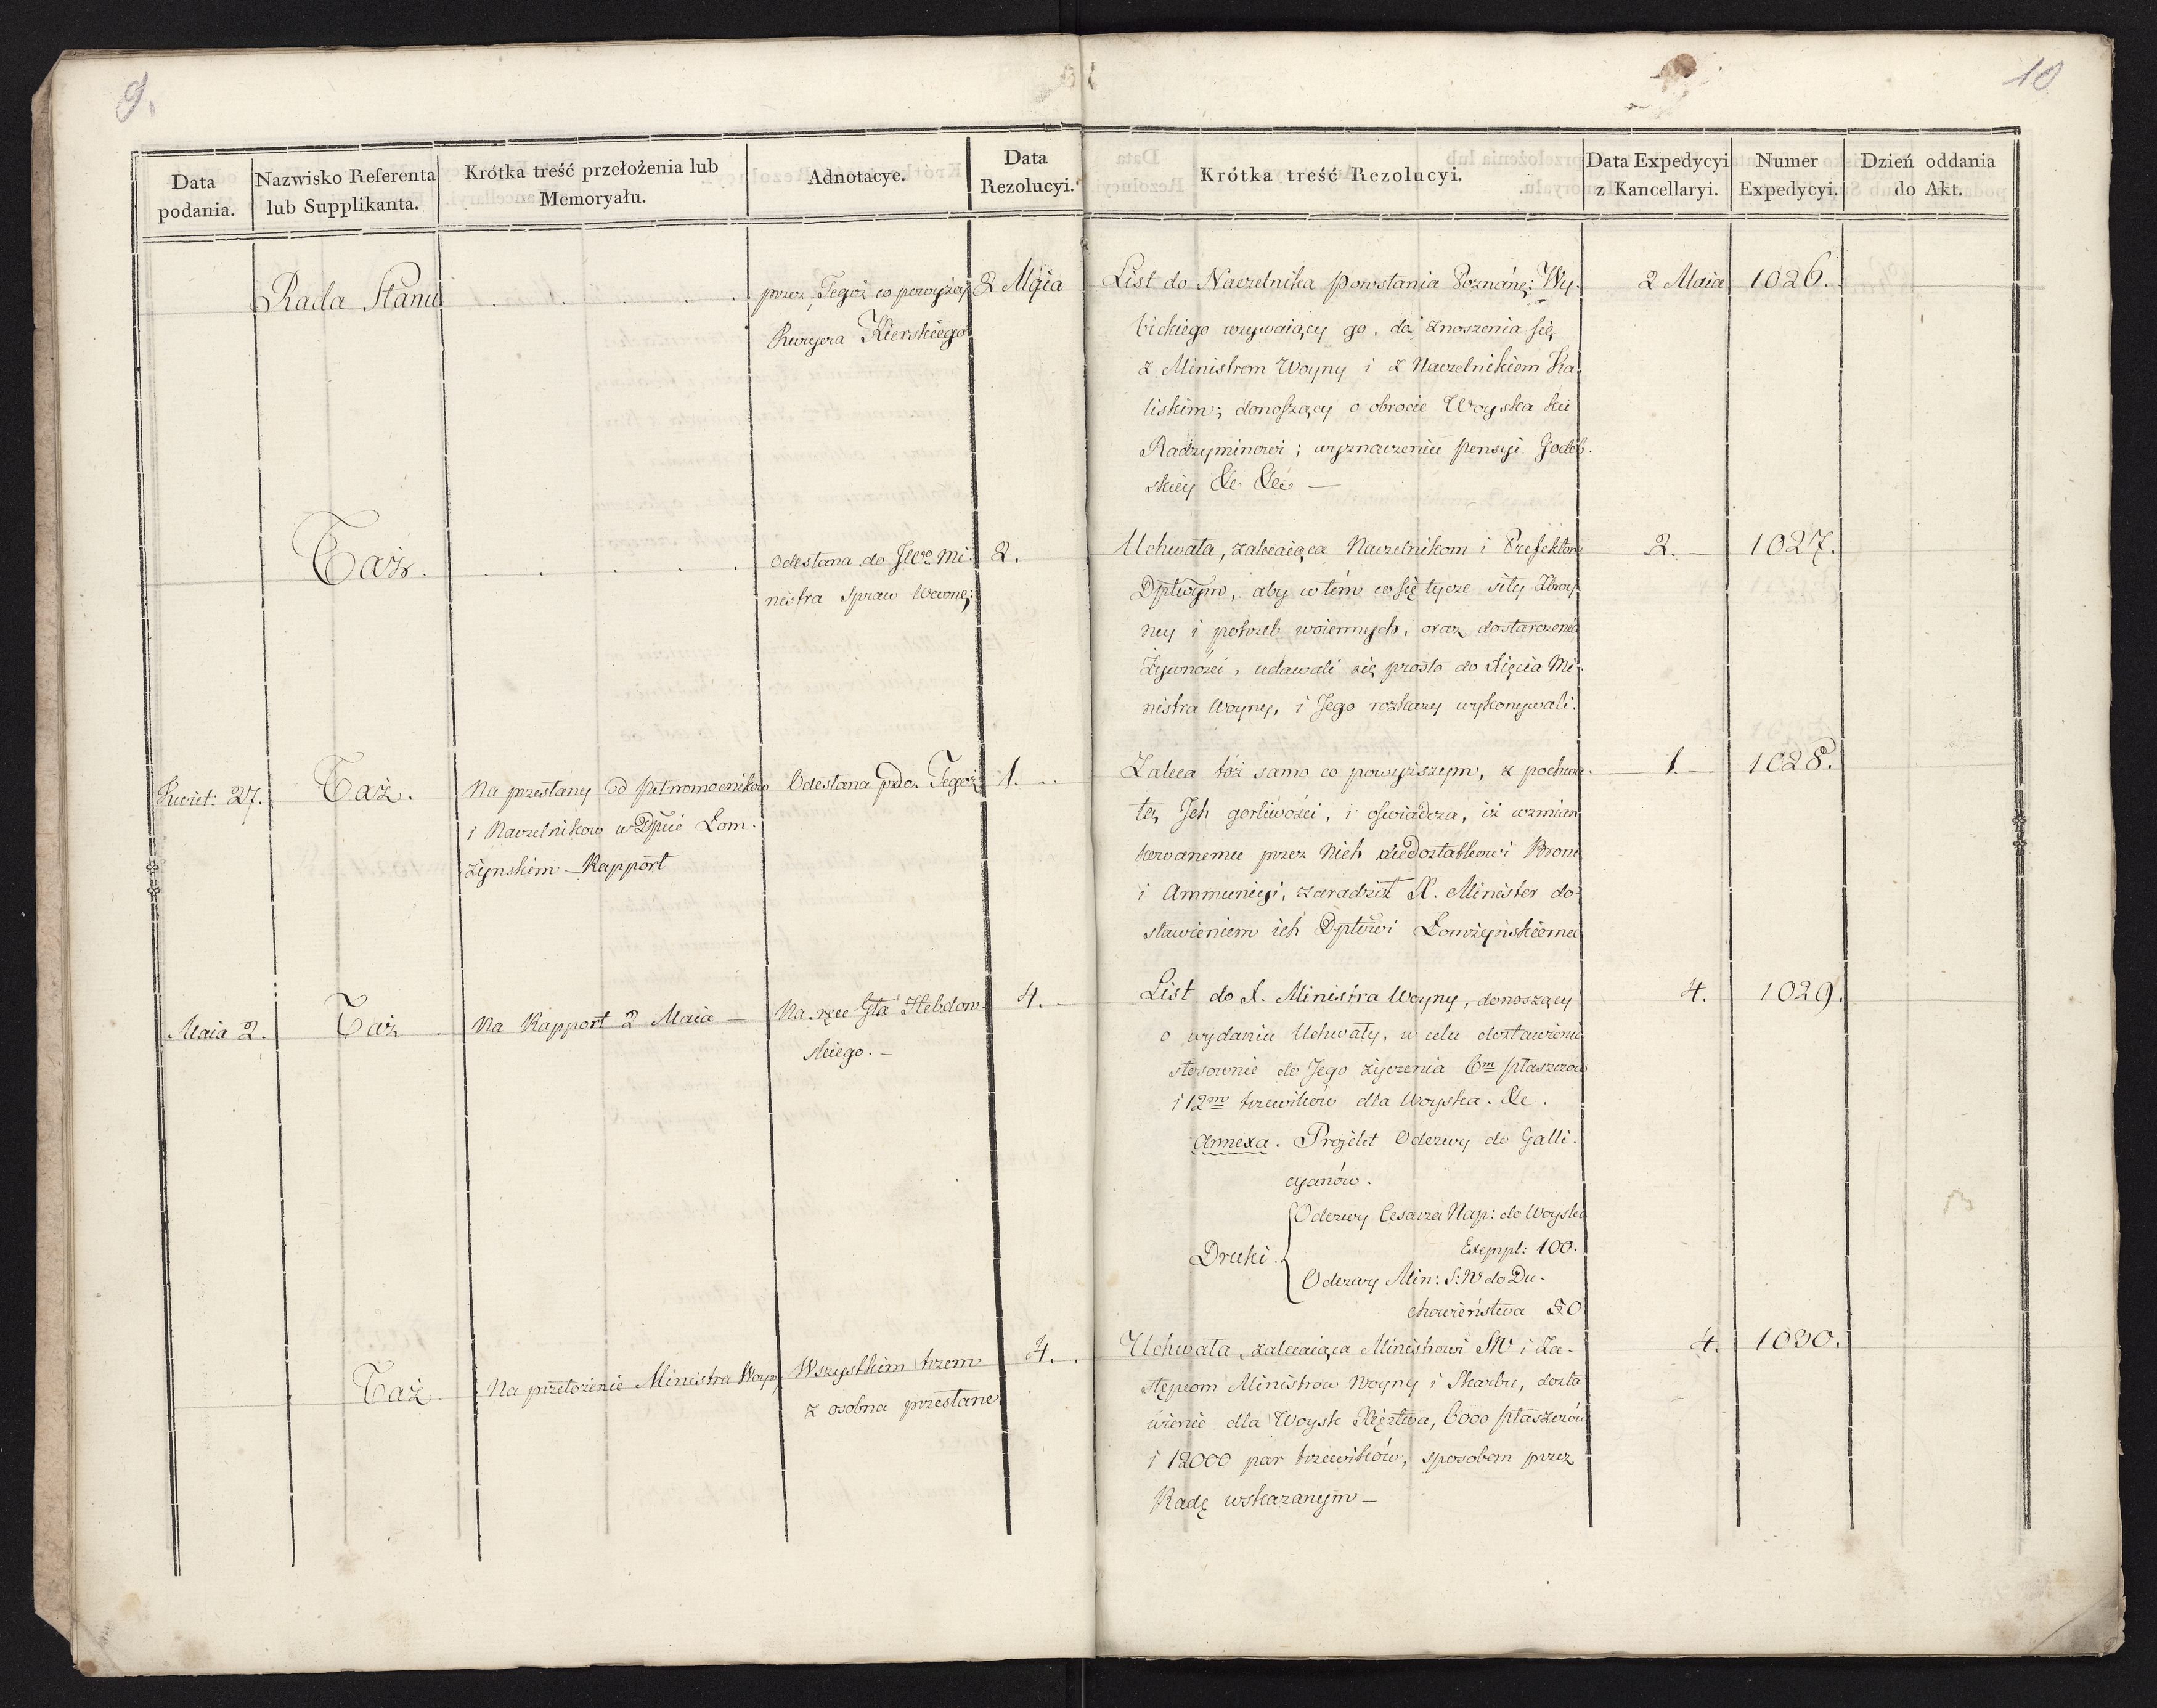 9.
10
Data
podania.
Nazwisko Referenta
lub Supplikanta.
Krótka treść przełożenia lub
Memoryału.
Adnotacye.
Data
Rezolucyi.
Krótka treść Rezolucyi.
Data Expedycyi
z Kancellaryi.
Numer
Expedycyi.
Dzień oddania
do Akt.
Rada Stanu
przez Tegoż co powyżey
Kuryera Kierskiego
2 Maia
List do Naczelnika powstania Poznanę: Wy-
bickiego wzywaiący go, do znoszenia się
z Ministrem Woyny i z Naczelnikiem Ka-
liskim; donoszący o obrocie Woyska ku
Radzyminowi; wyznaczeniu pensyi Godeb-
skiey &c &c –
2 Maia
1026.
Taż.
Odesłana do JW. Mi-
nistra spraw Wewnę:
2.
Uchwała, zalecaiąca Naczelnikom i Prefektom
Dptwym, aby w tém co się tycze siły Zbroy-
ney i potrzeb woiennych, oraz dostarczenia
Żywności, udawali się prosto do Xięcia Mi-
nistra Woyny, i Jego rozkazy wykonywali.
2. –
1027.
Kwiet: 27.
Taż.
Na przesłany od pełnomocników
i Naczelnikow w Dptcie Łom-
żynskim – Rapport
Odesłana pdo. Tegoż
1. ..
Zaleca toż samo co powyższym, z pochwa-
łą Jch gorliwości, i oświadcza, iż wzmian
kowanemu przez Nich niedostatkowi Broni
i Ammunicyi, zaradził X. Minister do-
stawieniem ich Dptwi Łomżyńskiemu
1. –
1028.
Maia 2.
Taż
Na Rapport 2 Maia –
Na ręce Gła Hebdow-
skiego. –
4. –
List do X. Ministra Woyny, donoszący
o wydaniu Uchwały, w celu dostawienia
stosownie do Jego życzenia 6m płaszczow
i 12m trzewików dla Woyska. &c.
Annexa. Projekt Odezwy do Galli-
cyanów.
Druki.
Odezwy Cesarza Nap: do Woyska
Exempl: 100.
Odezwy Min: S: W do Du-
chowieństwa 50
4.
1029.
Taż.
Na przełożenie Ministra Woyny
Wszystkim trzem
z osobna przesłane
4. .
Uchwała, zalecaiąca Ministrowi SW i Za-
stępcom Ministrow Woyny i Skarbu, dosta
wienie dla Woysk Xięstwa, 6000 płaszczów
i 12000 par trzewików, sposobem przez
Radę wskazanym –
4.
1030.